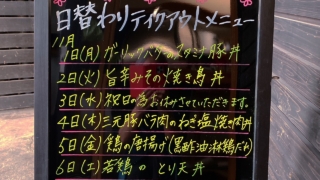 日替わりテイクアウトメニュー
11月
1日(月) ガーリックバターのスタミナ豚丼
2日(火) 旨辛みその焼き鳥丼
3日(水) 祝日の為お休みさせていただきます。
4日(木) 三元豚バラ肉のねぎ塩焼き肉丼
5日(金) 鶏の唐揚げ(黒酢油淋鶏だれ)
6日(土) 若鶏の とり天丼